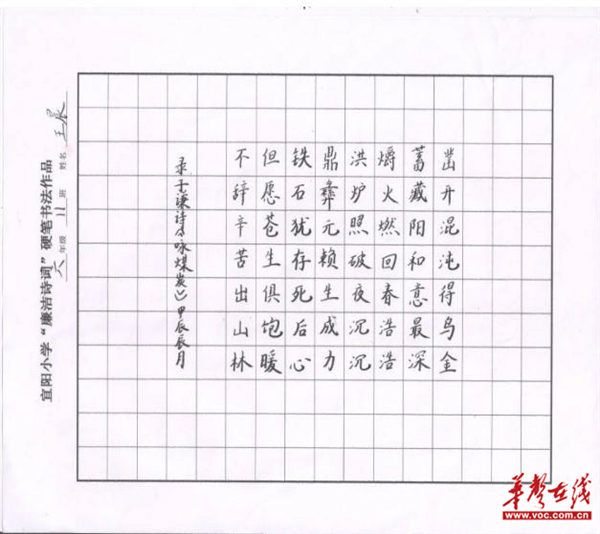 凿开混沌得乌金
蓄藏阳和意最深
爝火燃回春浩浩
洪炉照破夜沉沉
鼎彝元赖生成力
铁石犹存死后心
但愿苍生俱饱暖
不辞辛苦出山林
录于谦诗《咏煤炭》甲辰辰月
宜阳小学“廉洁诗词”硬笔书法作品
六年级 11 班 姓名 王晨
华声在线
www.voc.com.cn